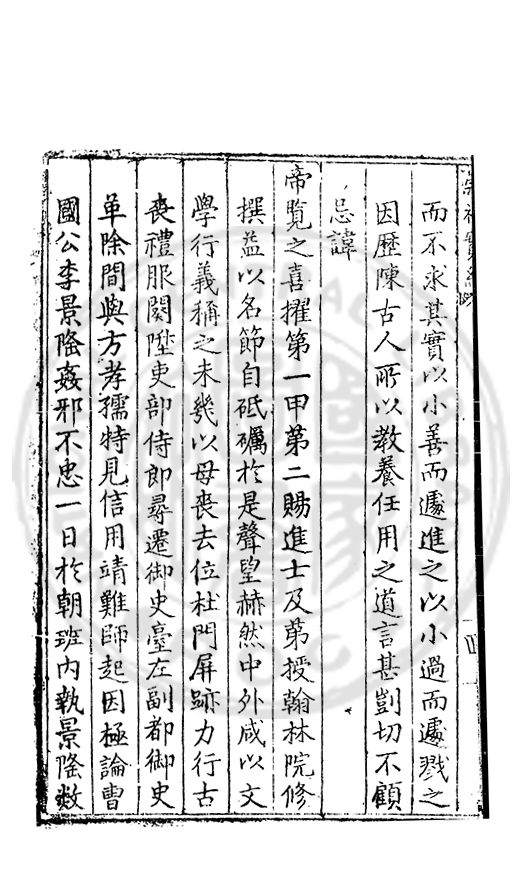 而不求其實以小善而遽進之以小過而遽戮之
因歷陳古人所以教養任用之道言甚剴切不顧
忌諱
帝覽之喜擢第一甲第二賜進士及第授翰林院修
撰益以名節自砥礪於是聲望赫然中外咸以文
學行義稱之未幾以母喪去位杜門屏跡力行古
喪禮服闋陞吏部侍郎尋遷御史臺左副都御史
革除間與方孝孺特見信用靖難師起因極論曹
國公李景隆姦邪不忠一日於朝班內執景隆數